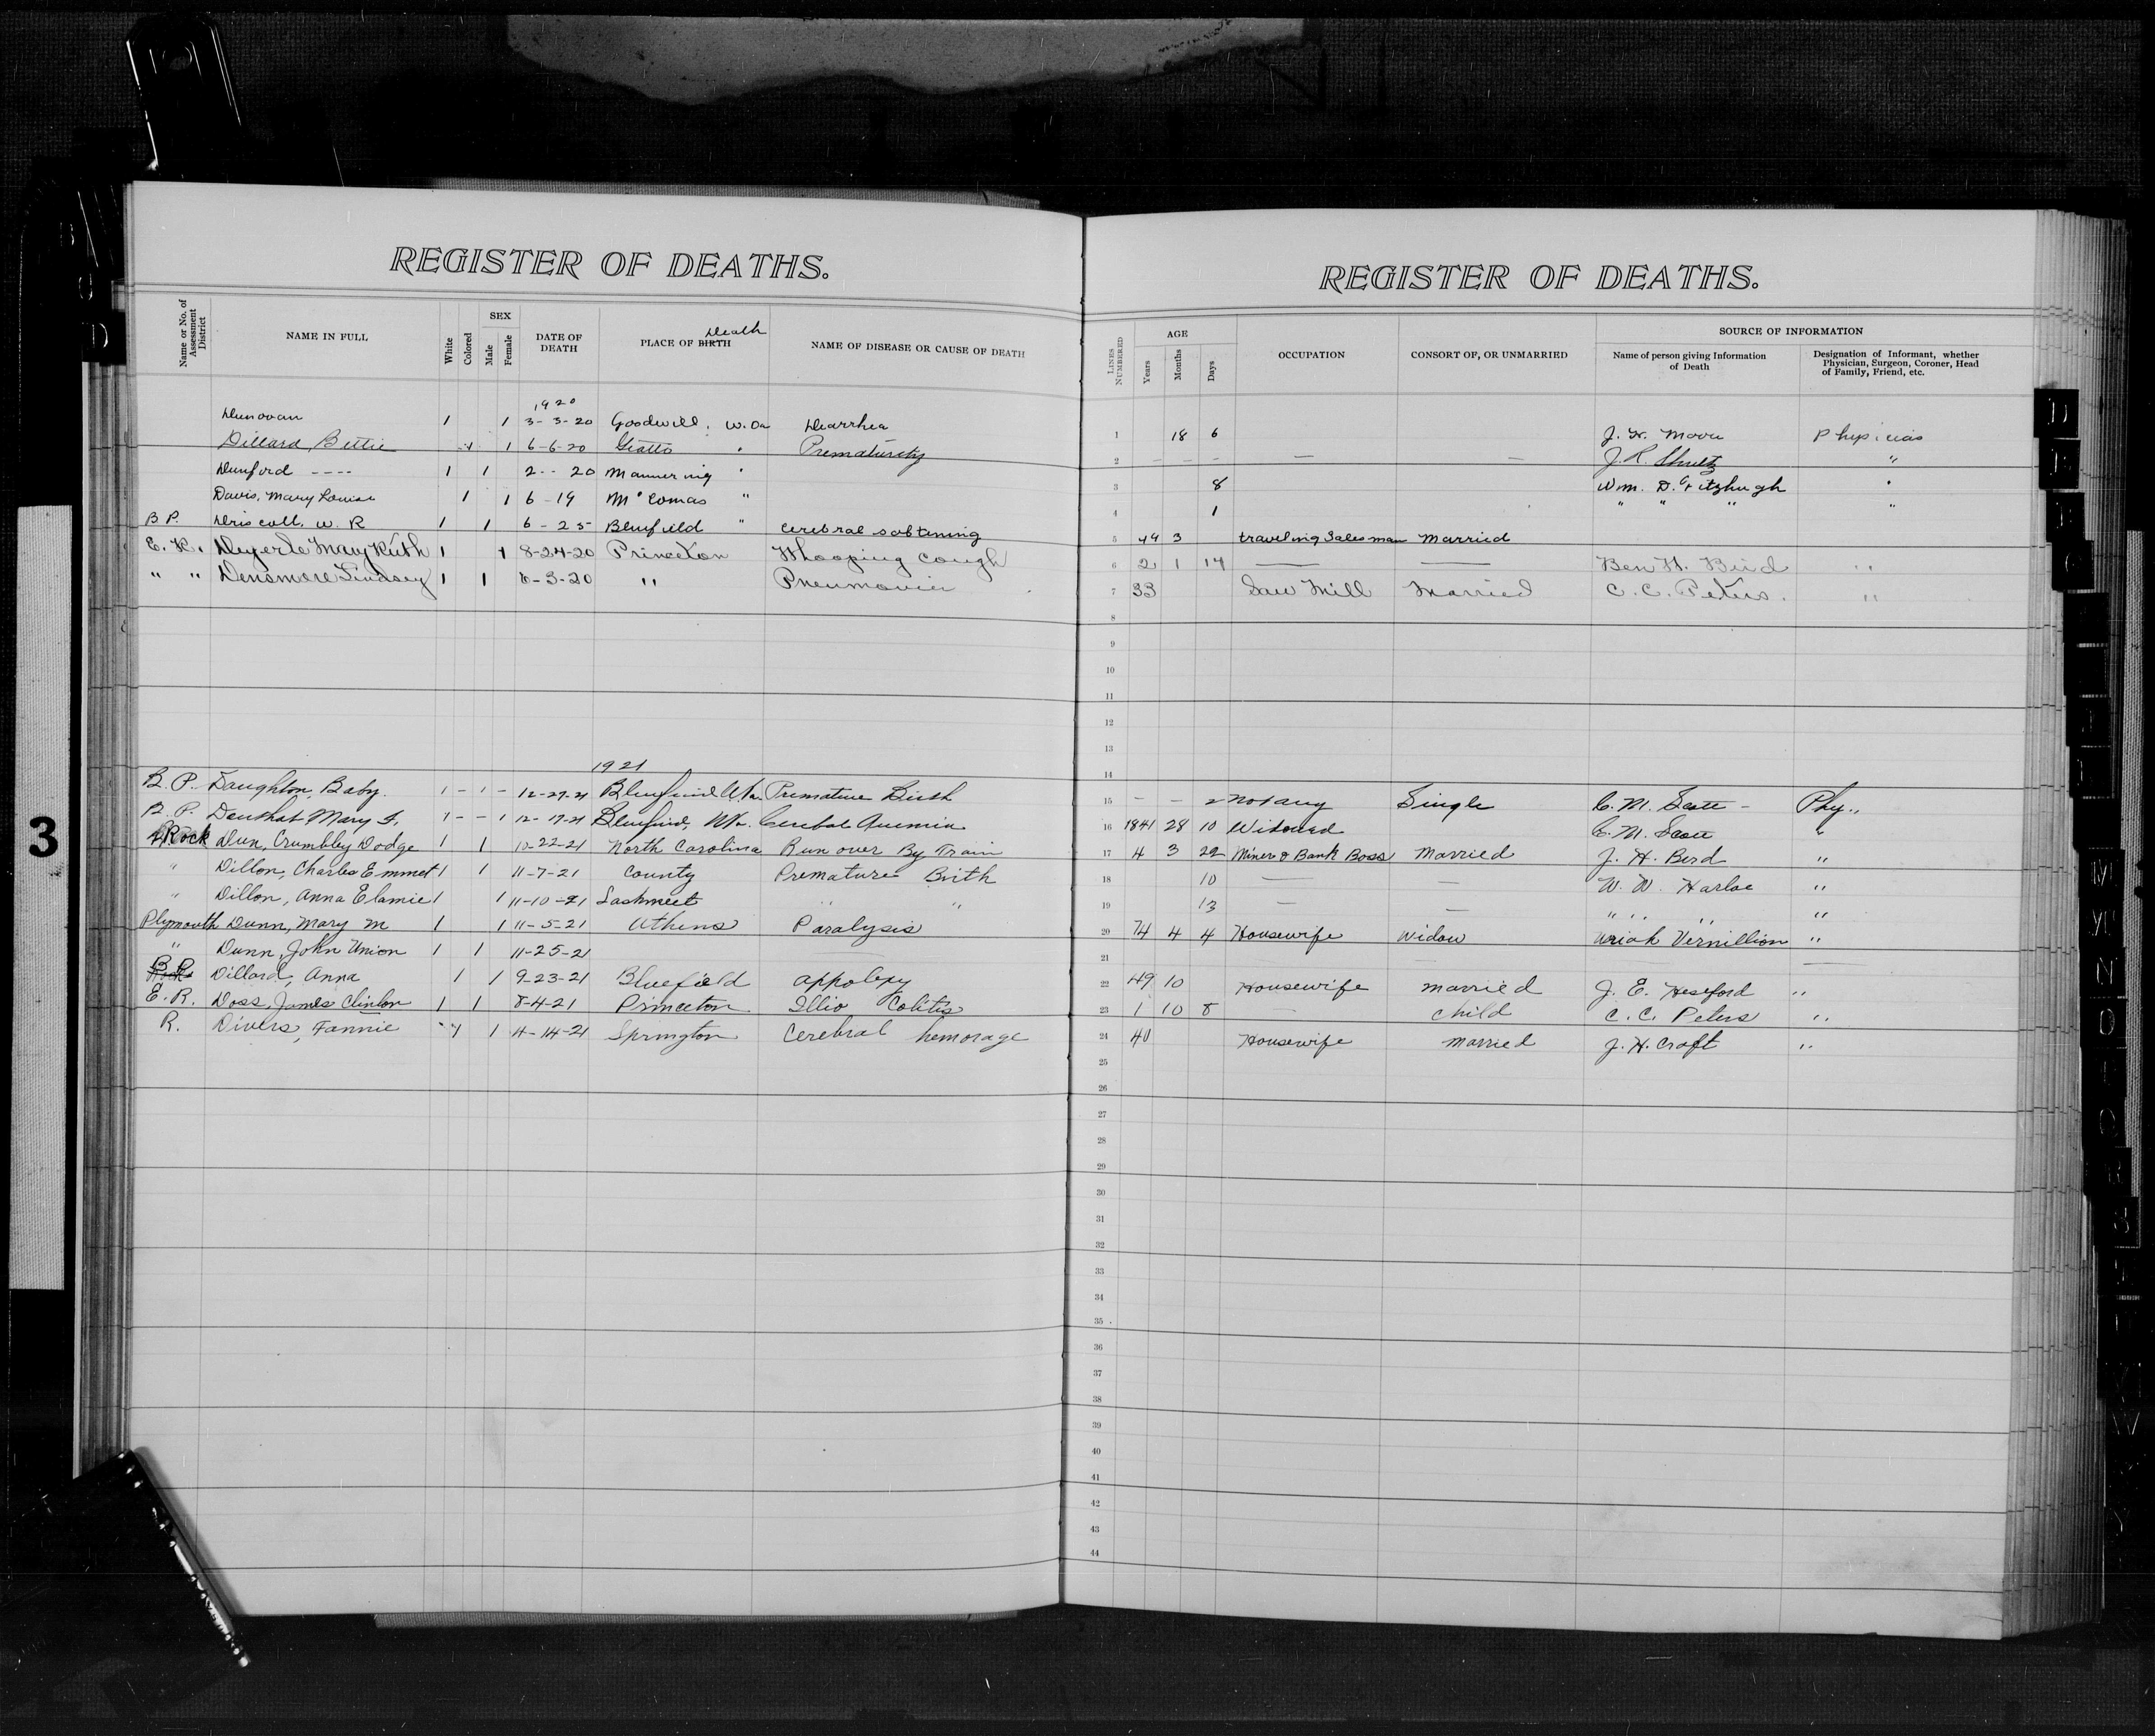 REGISTER OF DEATHS.
Name or No. of Assessment District
NAME IN FULL
White
Colored
SEX
Male
Female
DATE OF DEATH
PLACE OF BIRTH Death
NAME OF DISEASE OR CAUSE OF DEATH
1920
Dunovan 1 1 3-3-20 Goodwill, W. Va Diarrhea
Dillard, Bettie 1 1 6-6-20 Giatto " Prematurity
Dunford ---- 1 1 2-- 20 Mannering "
Davis, Mary Louise 1 1 6-19 McComas "
B P. Driscoll, W. R 1 1 6-25 Bluefield " Cerebral softening
E. R. Deyerle Mary Ruth 1 1 8-24-20 Princeton Whooping Cough
" " Densmore Lindsey 1 1 6-3-20 " Pneumonia
1921
B. P. Daughton, Baby. 1 - 1 - 12-27-21 Bluefield W Va. Premature Birth
B. P. Douthat Mary F. 1 - - 1 12-17-21 Bluefield, W Va. Cerebral Anemia
Rock Dun, Crumbley Dodge 1 1 10-22-21 North Carolina Run over By Train
" Dillon, Charles Emmet 1 1 11-7-21 County Premature Brith
" Dillon, Anna Elamie 1 1 11-10-21 Lashmeet " "
Plymouth Dunn, Mary M 1 1 11-5-21 Athens Paralysis
" Dunn, John Union 1 1 11-25-21
B P Dillard, Anna 1 1 9-23-21 Bluefield appolexy
E. R. Doss, James Clinton 1 1 8-4-21 Princeton Illio Colitis
R. Divers, Fannie 1 1 11-14-21 Springton Cerebral hemorage
REGISTER OF DEATHS.
LINES NUMBERED
AGE
Years
Months
Days
OCCUPATION
CONSORT OF, OR UNMARRIED
SOURCE OF INFORMATION
Name of person giving Information of Death
Designation of Informant, whether Physician, Surgeon, Coroner, Head of Family, Friend, etc.
1 18 6 J. H. Moore Physician
2 — — — — — J. R. Shultz "
3 8 Wm. D. Fitzhugh "
4 1 " " " "
5 49 3 traveling Salesman Married
6 2 1 14 — — Ben H. Bird "
7 33 Saw Mill Married C. C. Peters. "
8
9
10
11
12
13
14
15 — — 2 not any Single C. M. Scott - Phy.,
16 1841 28 10 Widowed C. M. Scott "
17 4 3 22 Miner & Bank Boss Married J. H. Bird "
18 10 — — W. W. Harloe "
19 13 — — " " " "
20 74 4 4 Housewife Widow Uriah Vermillion "
21 —
22 49 10 Housewife married J. E. Hesford "
23 1 10 8 — child C. C. Peters "
24 40 Housewife married J. H. Craft "
25
26
27
28
29
30
31
32
33
34
35
36
37
38
39
40
41
42
43
44
3